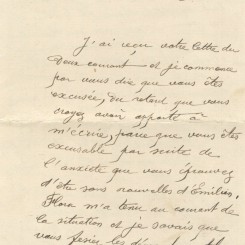 J'ai reçu votre lettre du
deux courant et je commence
par vous dire que vous êtes
excusée, du retard que vous
croyez avoir apporté à
m'écrire, parce que vous êtes
excusable par suite de
l'anxiété que vous éprouvez
d'être sans nouvelles d'Emilien,
Flora m'a tenu au courant de
la situation et je savais que
vous